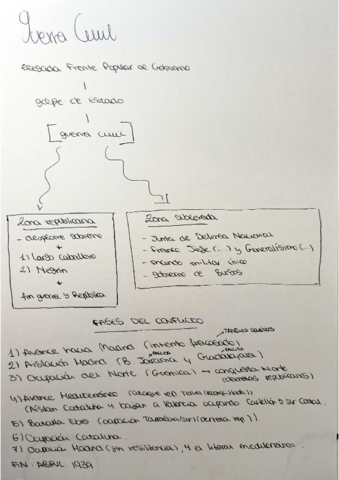 Guerra Civil
Llegada Frente Popular al Gobierno
golpe de Estado
[guerra civil]
Zona republicana
- desplome gobierno
1) Largo Caballero
2) Negrín
fin guerra y República
Zona sublevada
- Junta de Defensa Nacional
- Franco Jefe (...) y Generalísimo (...)
- mando militar único
- Gobierno de Burgos
FASES DEL CONFLICTO
1) Avance hacia Madrid (intento fracasado)
2) Aislación Madrid (B. Jarama y Guadalajara)
3) Ocupación del Norte (Guernica) → conquista Norte
(derrotas republicanas)
4) Avance Mediterráneo (ataque rep. Teruel
(Aíslan Cataluña y bajar a Valencia ocupando Castellón
5) Batalla Ebro (ocupación (derrota rep.))
6) Ocupación Cataluña
7) Ocupación Madrid (sin resistencia), y el litoral mediterráneo.
FIN: ABRIL 1939